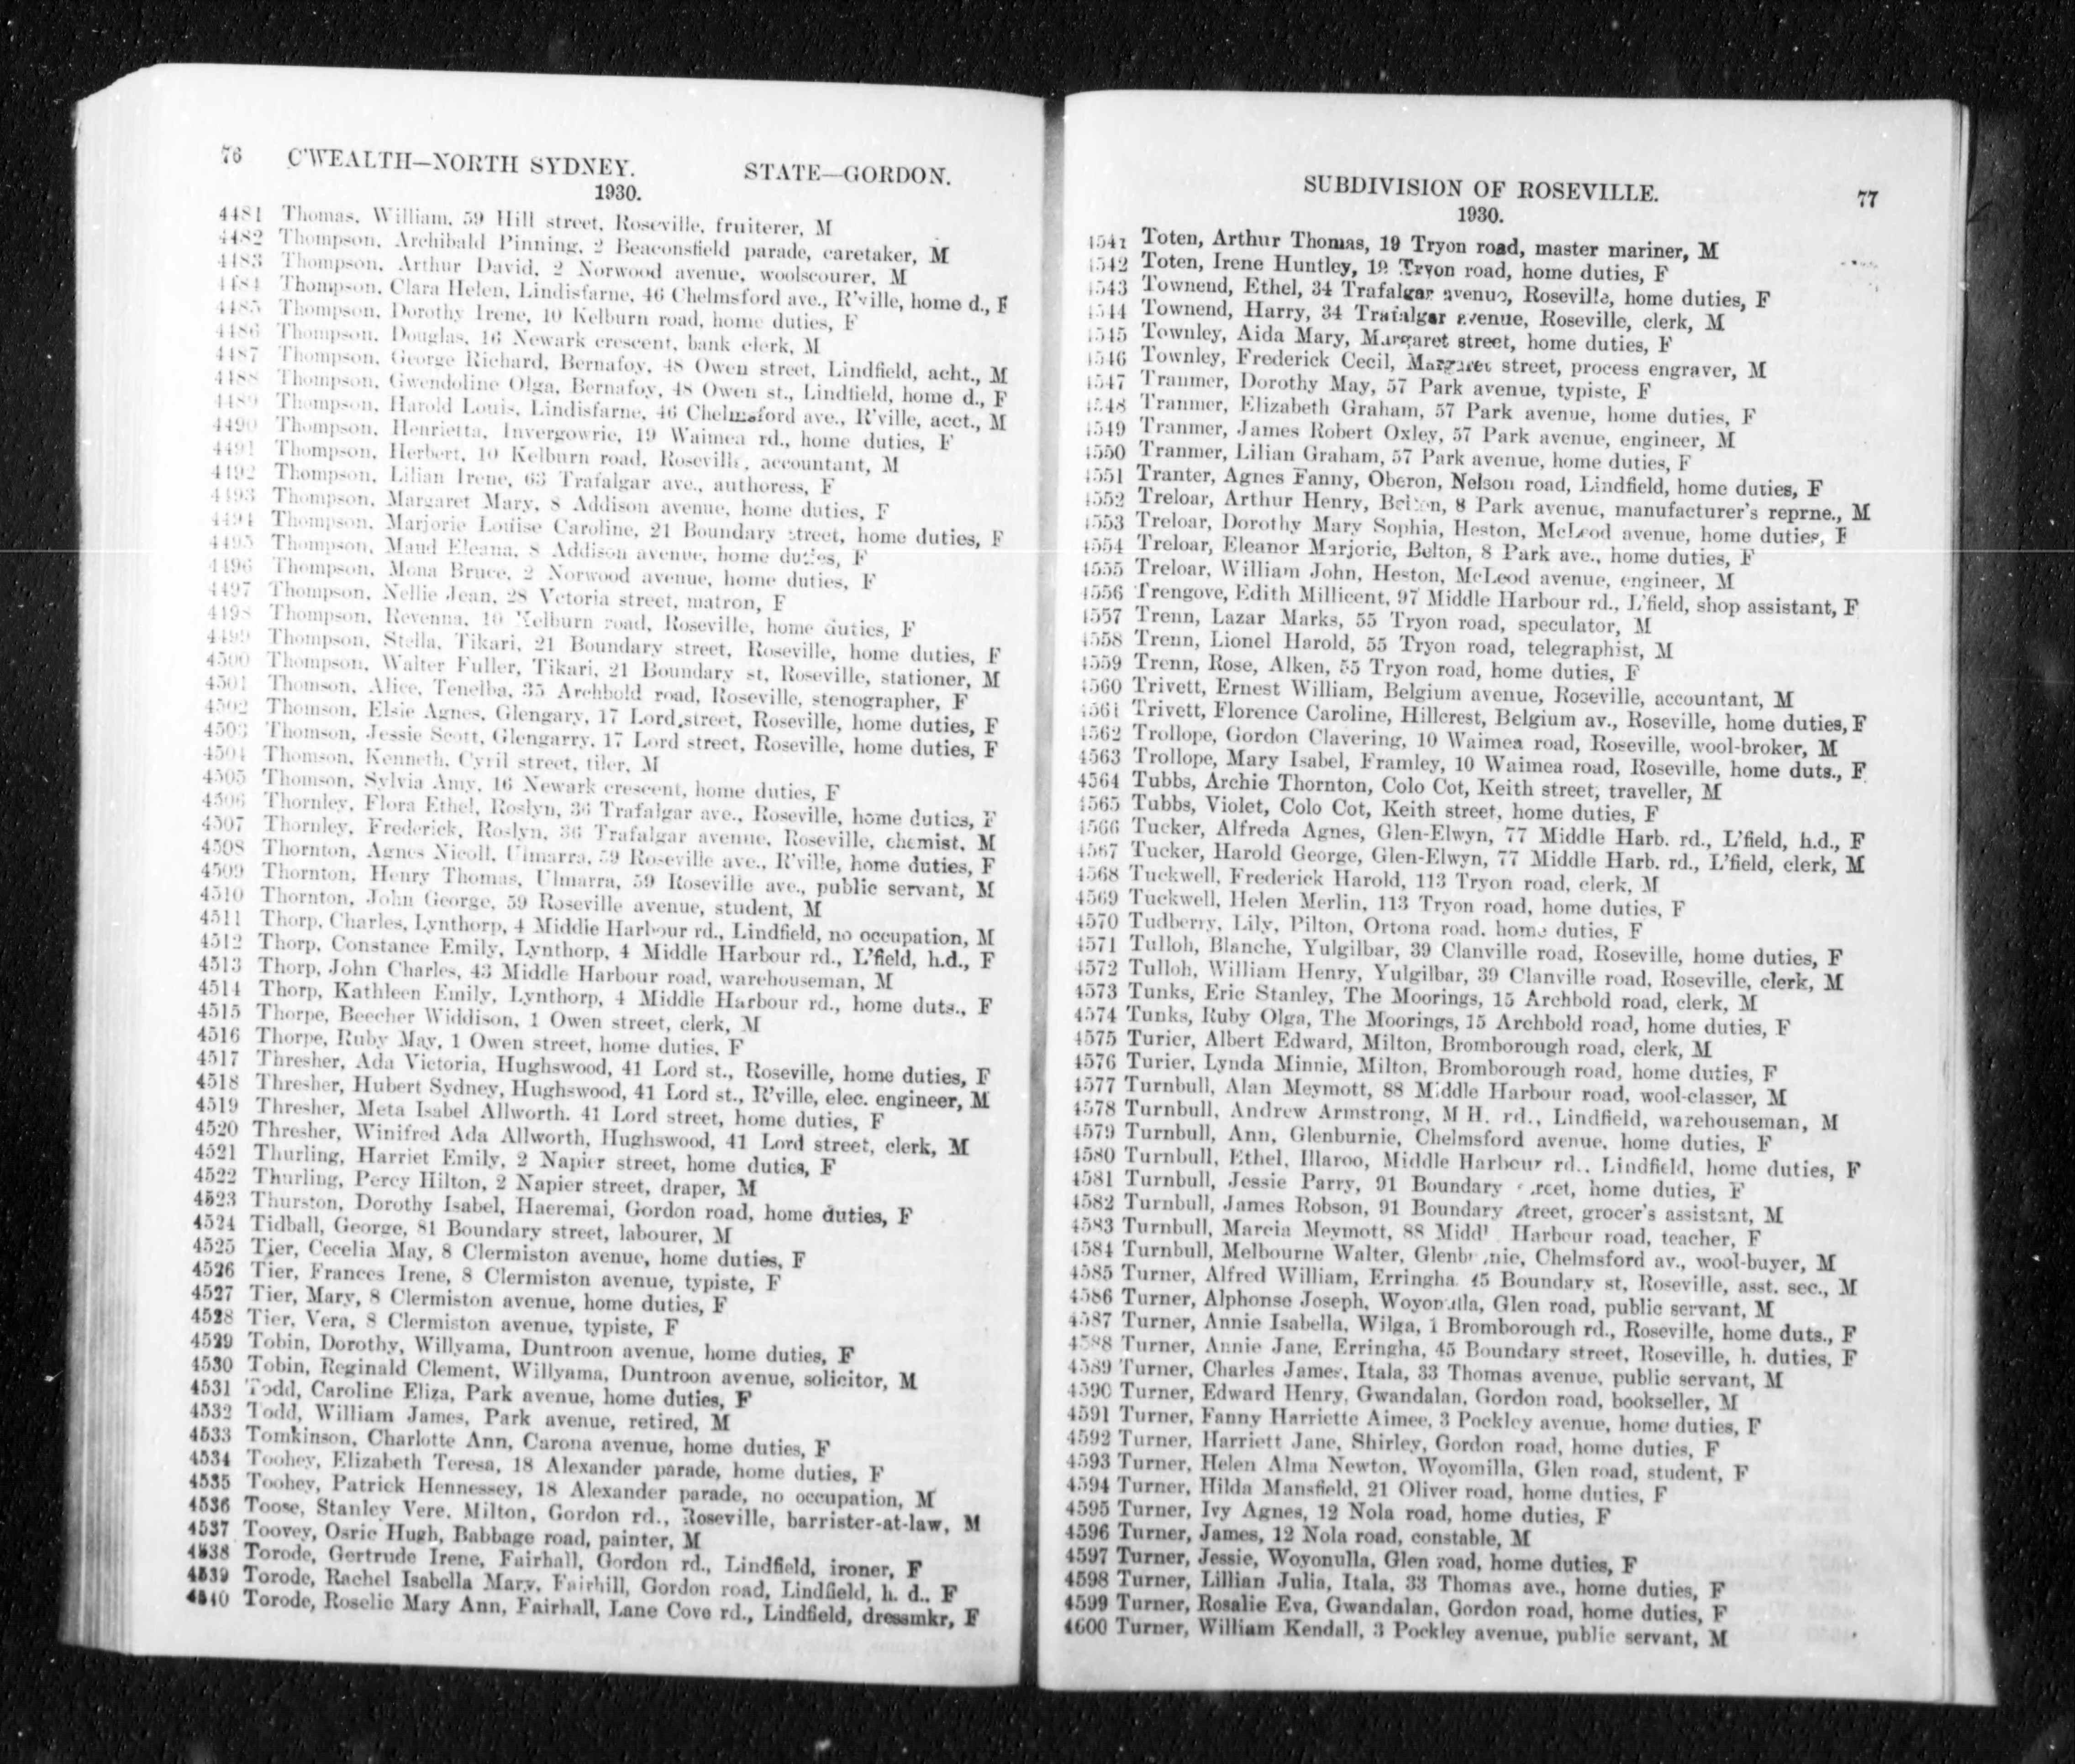 76 C'WEALTH—NORTH SYDNEY. STATE—GORDON.
1930.
4481 Thomas, William, 59 Hill street, Roseville, fruiterer, M
4482 Thompson, Archibald Pinning, 2 Beaconsfield parade, caretaker, M
4483 Thompson, Arthur David, 2 Norwood avenue, woolscourer, M
4484 Thompson, Clara Helen, Lindisfarne, 46 Chelmsford ave., R'ville, home d., F
4485 Thompson, Dorothy Irene, 10 Kelburn road, home duties, F
4486 Thompson, Douglas, 16 Newark crescent, bank clerk, M
4487 Thompson, George Richard, Bernafoy, 48 Owen street, Lindfield, acht., M
4488 Thompson, Gwendoline Olga, Bernafoy, 48 Owen st., Lindfield, home d., F
4489 Thompson, Harold Louis, Lindisfarne, 46 Chelmsford ave., R'ville, acct., M
4490 Thompson, Henrietta, Invergowrie, 19 Waimea rd., home duties, F
4491 Thompson, Herbert, 10 Kelburn road, Roseville, accountant, M
4492 Thompson, Lilian Irene, 63 Trafalgar ave., authoress, F
4493 Thompson, Margaret Mary, 8 Addison avenue, home duties, F
4494 Thompson, Marjorie Louise Caroline, 21 Boundary street, home duties, F
4495 Thompson, Maud Eleana, 8 Addison avenue, home duties, F
4496 Thompson, Mona Bruce, 2 Norwood avenue, home duties, F
4497 Thompson, Nellie Jean, 28 Vctoria street, matron, F
4498 Thompson, Revenna, 10 Kelburn road, Roseville, home duties, F
4499 Thompson, Stella, Tikari, 21 Boundary street, Roseville, home duties, F
4500 Thompson, Walter Fuller, Tikari, 21 Boundary st, Roseville, stationer, M
4501 Thomson, Alice, Tenelba, 35 Archbold road, Roseville, stenographer, F
4502 Thomson, Elsie Agnes, Glengary, 17 Lord street, Roseville, home duties, F
4503 Thomson, Jessie Scott, Glengarry, 17 Lord street, Roseville, home duties, F
4504 Thomson, Kenneth, Cyril street, tiler, M
4505 Thomson, Sylvia Amy, 16 Newark crescent, home duties, F
4506 Thornley, Flora Ethel, Roslyn, 36 Trafalgar ave., Roseville, home duties, F
4507 Thornley, Frederick, Roslyn, 36 Trafalgar avenue, Roseville, chemist, M
4508 Thornton, Agnes Nicoll, Ulmarra, 59 Roseville ave., R'ville, home duties, F
4509 Thornton, Henry Thomas, Ulmarra, 59 Roseville ave., public servant, M
4510 Thornton, John George, 59 Roseville avenue, student, M
4511 Thorp, Charles, Lynthorp, 4 Middle Harbour rd., Lindfield, no occupation, M
4512 Thorp, Constance Emily, Lynthorp, 4 Middle Harbour rd., L'field, h.d., F
4513 Thorp, John Charles, 43 Middle Harbour road, warehouseman, M
4514 Thorp, Kathleen Emily, Lynthorp, 4 Middle Harbour rd., home duts., F
4515 Thorpe, Beecher Widdison, 1 Owen street, clerk, M
4516 Thorpe, Ruby May, 1 Owen street, home duties, F
4517 Thresher, Ada Victoria, Hughswood, 41 Lord st., Roseville, home duties, F
4518 Thresher, Hubert Sydney, Hughswood, 41 Lord st., R'ville, elec. engineer, M
4519 Thresher, Meta Isabel Allworth. 41 Lord street, home duties, F
4520 Thresher, Winifred Ada Allworth, Hughswood, 41 Lord street, clerk, M
4521 Thurling, Harriet Emily, 2 Napier street, home duties, F
4522 Thurling, Percy Hilton, 2 Napier street, draper, M
4523 Thurston, Dorothy Isabel, Haeremai, Gordon road, home duties, F
4524 Tidball, George, 81 Boundary street, labourer, M
4525 Tier, Cecelia May, 8 Clermiston avenue, home duties, F
4526 Tier, Frances Irene, 8 Clermiston avenue, typiste, F
4527 Tier, Mary, 8 Clermiston avenue, home duties, F
4528 Tier, Vera, 8 Clermiston avenue, typiste, F
4529 Tobin, Dorothy, Willyama, Duntroon avenue, home duties, F
4530 Tobin, Reginald Clement, Willyama, Duntroon avenue, solicitor, M
4531 Todd, Caroline Eliza, Park avenue, home duties, F
4532 Todd, William James, Park avenue, retired, M
4533 Tomkinson, Charlotte Ann, Carona avenue, home duties, F
4534 Toohey, Elizabeth Teresa, 18 Alexander parade, home duties, F
4535 Toohey, Patrick Hennessey, 18 Alexander parade, no occupation, M
4536 Toose, Stanley Vere, Milton, Gordon rd., Roseville, barrister-at-law, M
4537 Toovey, Osric Hugh, Babbage road, painter, M
4538 Torode, Gertrude Irene, Fairhall, Gordon rd., Lindfield, ironer, F
4539 Torode, Rachel Isabella Mary, Fairhill, Gordon road, Lindfield, h. d.. F
4540 Torode, Roselie Mary Ann, Fairhall, Lane Cove rd., Lindfield, dressmkr, F
SUBDIVISION OF ROSEVILLE. 77
1930.
4541 Toten, Arthur Thomas, 19 Tryon road, master mariner, M
4542 Toten, Irene Huntley, 19 Tryon road, home duties, F
4543 Townend, Ethel, 34 Trafalgar avenue, Roseville, home duties, F
4544 Townend, Harry, 34 Trafalgar avenue, Roseville, clerk, M
4545 Townley, Aida Mary, Margaret street, home duties, F
4546 Townley, Frederick Cecil, Margaret street, process engraver, M
4547 Tranmer, Dorothy May, 57 Park avenue, typiste, F
4548 Tranmer, Elizabeth Graham, 57 Park avenue, home duties, F
4549 Tranmer, James Robert Oxley, 57 Park avenue, engineer, M
4550 Tranmer, Lilian Graham, 57 Park avenue, home duties, F
4551 Tranter, Agnes Fanny, Oberon, Nelson road, Lindfield, home duties, F
4552 Treloar, Arthur Henry, 8 Park avenue, manufacturer's reprne., M
4553 Treloar, Dorothy Mary Sophia, Heston, McLeod avenue, home duties, F
4554 Treloar, Eleanor Marjorie, Belton, 8 Park ave., home duties, F
4555 Treloar, William John, Heston, McLeod avenue, engineer, M
4556 Trengove, Edith Millicent, 97 Middle Harbour rd., L'field, shop assistant, F
4557 Trenn, Lazar Marks, 55 Tryon road, speculator, M
4558 Trenn, Lionel Harold, 55 Tryon road, telegraphist, M
4559 Trenn, Rose, Alken, 55 Tryon road, home duties, F
4560 Trivett, Ernest William, Belgium avenue, Roseville, accountant, M
4561 Trivett, Florence Caroline, Hillcrest, Belgium av., Roseville, home duties, F
4562 Trollope, Gordon Clavering, 10 Waimea road, Roseville, wool-broker, M
4563 Trollope, Mary Isabel, Framley, 10 Waimea road, Roseville, home duts., F
4564 Tubbs, Archie Thornton, Colo Cot, Keith street, traveller, M
4565 Tubbs, Violet, Colo Cot, Keith street, home duties, F
4566 Tucker, Alfreda Agnes, Glen-Elwyn, 77 Middle Harb. rd., L'field, h.d., F
4567 Tucker, Harold George, Glen-Elwyn, 77 Middle Harb. rd., L'field, clerk, M
4568 Tuckwell, Frederick Harold, 113 Tryon road, clerk, M
4569 Tuckwell, Helen Merlin, 113 Tryon road, home duties, F
4570 Tudberry, Lily, Pilton, Ortona road, home duties, F
4571 Tulloh, Blanche, Yulgilbar, 39 Clanville road, Roseville, home duties, F
4572 Tulloh, William Henry, Yulgilbar, 39 Clanville road, Roseville, clerk, M
4573 Tunks, Eric Stanley, The Moorings, 15 Archbold road, clerk, M
4574 Tunks, Ruby Olga, The Moorings, 15 Archbold road, home duties, F
4575 Turier, Albert Edward, Milton, Bromborough road, clerk, M
4576 Turier, Lynda Minnie, Milton, Bromborough road, home duties, F
4577 Turnbull, Alan Meymott, 88 Middle Harbour road, wool-classer, M
4578 Turnbull, Andrew Armstrong, M H. rd., Lindfield, warehouseman, M
4579 Turnbull, Ann, Glenburnie, Chelmsford avenue, home duties, F
4580 Turnbull, Ethel, Illaroo, Middle Harbour rd., Lindfield, home duties, F
4581 Turnbull, Jessie Parry, 91 Boundary street, home duties, F
4582 Turnbull, James Robson, 91 Boundary street, grocer's assistant, M
4583 Turnbull, Marcia Meymott, 88 Middl Harbour road, teacher, F
4584 Turnbull, Melbourne Walter, Glenburnie, Chelmsford av., wool-buyer, M
4585 Turner, Alfred William, Erringha 45 Boundary st, Roseville, asst. sec., M
4586 Turner, Alphonso Joseph, Glen road, public servant, M
4587 Turner, Annie Isabella, Wilga, 1 Bromborough rd., Roseville, home duts., F
4588 Turner, Annie Jane, Erringha, 45 Boundary street, Roseville, h. duties, F
4589 Turner, Charles James, Itala, 33 Thomas avenue, public servant, M
4590 Turner, Edward Henry, Gwandalan, Gordon road, bookseller, M
4591 Turner, Fanny Harriette Aimee, 3 Pockley avenue, home duties, F
4592 Turner, Harriett Jane, Shirley, Gordon road, home duties, F
4593 Turner, Helen Alma Newton, Woyomilla, Glen road, student, F
4594 Turner, Hilda Mansfield, 21 Oliver road, home duties, F
4595 Turner, Ivy Agnes, 12 Nola road, home duties, F
4596 Turner, James, 12 Nola road, constable, M
4597 Turner, Jessie, Woyonulla, Glen road, home duties, F
4598 Turner, Lillian Julia, Itala, 33 Thomas ave., home duties, F
4599 Turner, Rosalie Eva, Gwandalan, Gordon road, home duties, F
4600 Turner, William Kendall, 3 Pockley avenue, public servant, M